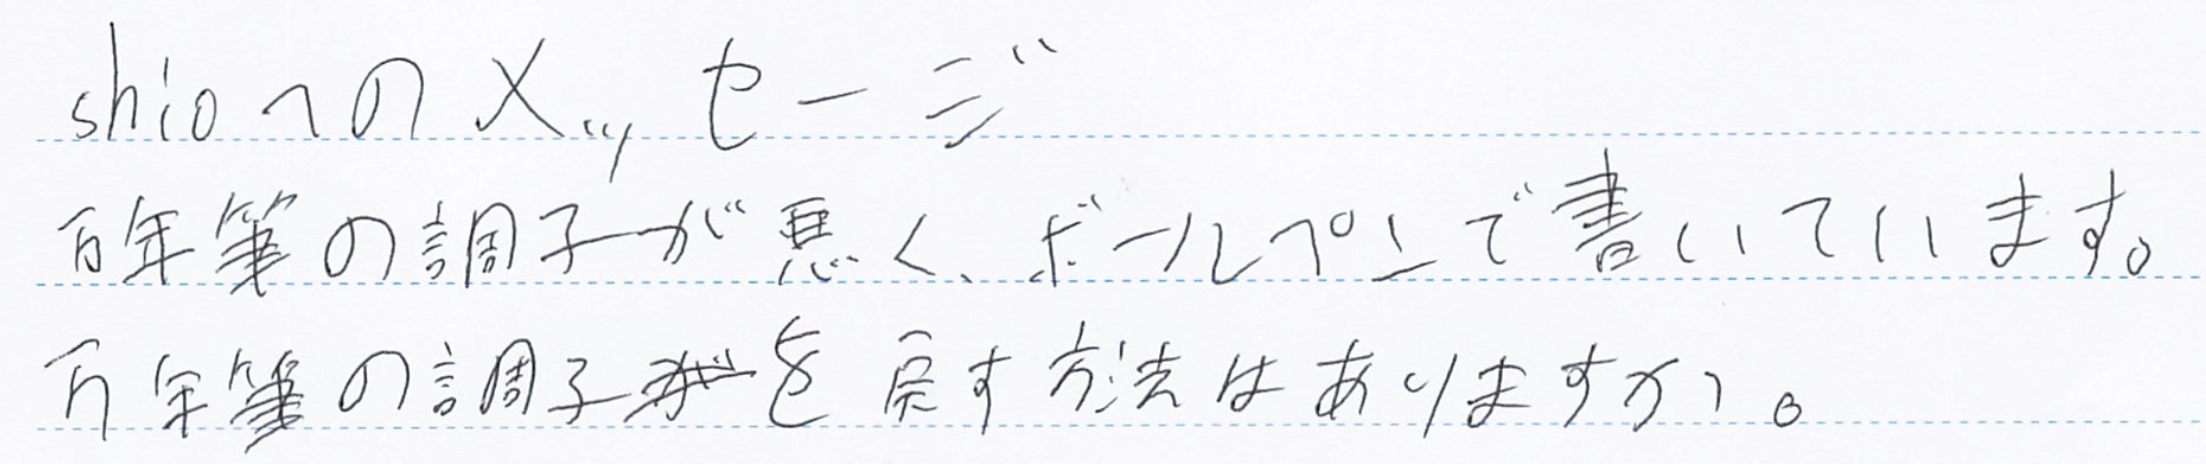 shioへのメッセージ
百年筆の調子が悪く、ボールペンで書いています。
万年筆の調子を戻す方法はありますか。